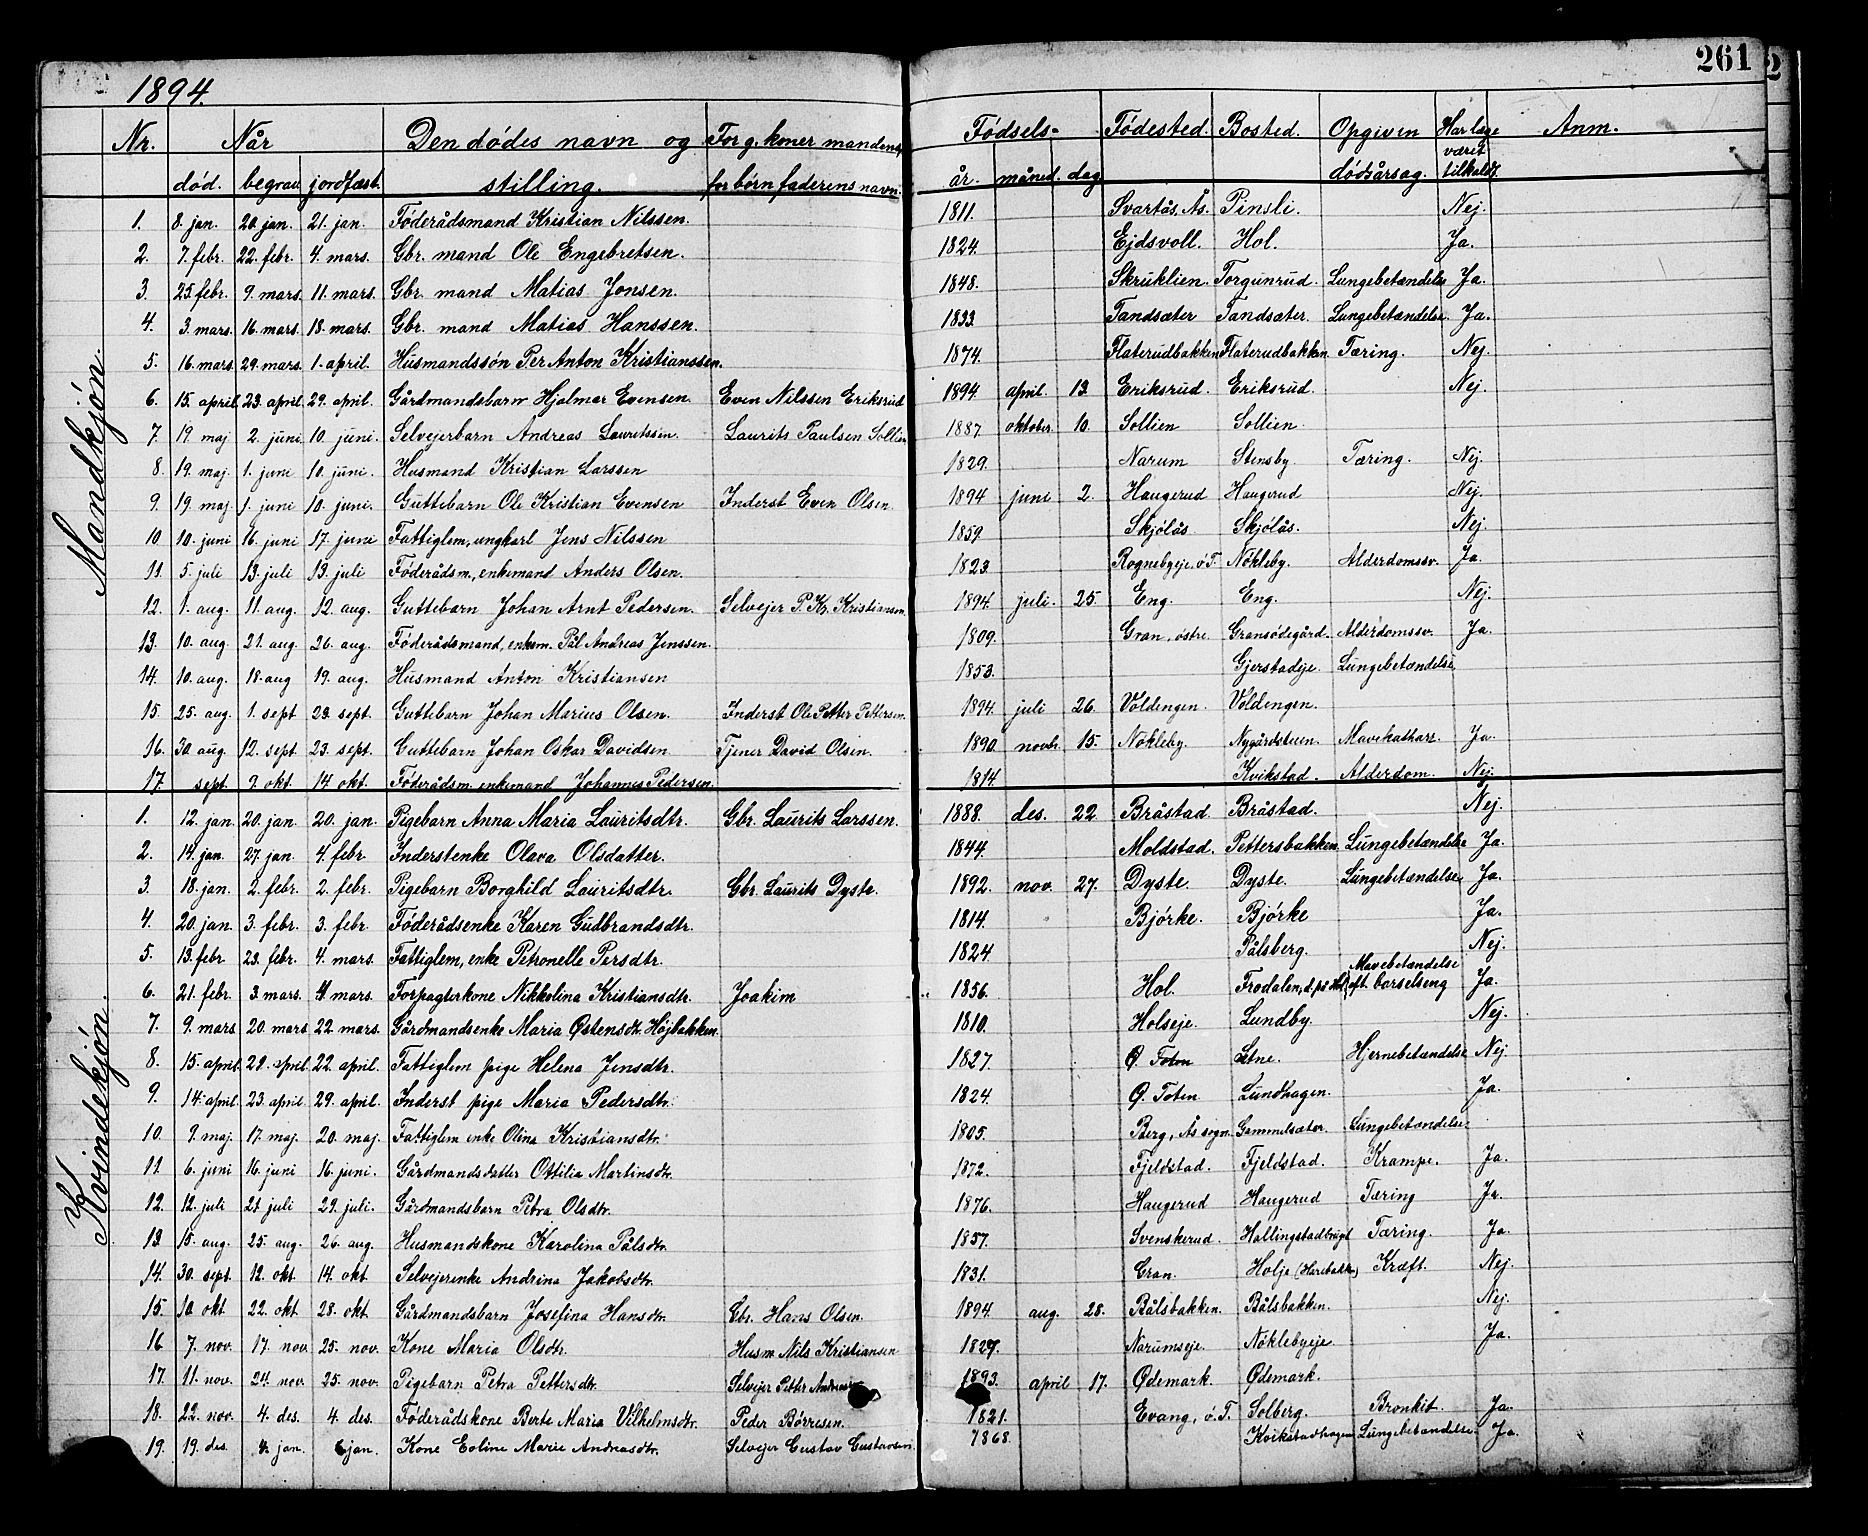 261
2
1894.
Nr. Når Den dødes navn og For g. koner mandens, Fødsels- Fødested. Bosted. Opgiven Har læge Anm.
død. begrav. jordfæst. stilling. for børn faderens navn. år. måned. dag dødsårsag. været tilkaldt.
Mandkjøn.
1. 8. jan. 20. jan. 21. jan. Føderådsmand Kristian Nilssen. 1811. Svartås, Ås. Pinsli. Nej.
2. 7. febr. 22. febr. 4. mars. Gbr. mand Ole Engebretsen. 1824. Ejdsvoll. Hol. Ja.
3. 25. febr. 9. mars. 11. mars. Gbr. mand Matias Jonsen. 1848. Skruklien. Torgunrud. Lungebetændelse Ja.
4. 3. mars. 16. mars. 18. mars. Gbr. mand Matias Hanssen. 1833. Tandsæter Tandsæter. Lungebetændelse. Ja.
5. 16. mars. 29. mars. 1. april. Husmandssøn Per Anton Kristianssen. 1874. Flaterudbakken Flaterudbakken. Tæring. Nej.
6. 15. april 23. april 29. april. Gårdmandsbarn Hjalmar Evensen. Even Nilssen Eriksrud 1894. april. 13. Eriksrud. Eriksrud. Nej.
7. 19 maj 2. juni 10. juni. Selvejerbarn Andreas Lauritssen. Laurits Paulsen Sollien 1887. oktober. 10. Sollien Sollien.
8. 19. maj. 1. juni 10. juni. Husmand Kristian Larssen 1829. Narum Stensby. Tæring. Nej.
9. 19. maj. 1. juni 10. juni. Guttebarn Ole Kristian Evensen Inderst Even Olsen. 1894 juni 2. Haugerud Haugerud Nej.
10 10. juni 16. juni 17. juni Fattiglem, ungkarl Jens Nilssen 1859. Skjølås Skjølås. Nej.
11. 5. juli 13. juli 13. juli Føderådsm., enkemand Anders Olsen. 1823. Rognebyeje, ø. T. Nøkleby. Alderdomssv. Ja.
12. 1. aug. 11. aug. 12. aug. Guttebarn Johan Arnt Pedersen. Selvejer P. Kr. Kristiansen. 1894. juli. 25. Eng. Eng. Nej.
13. 10. aug 21. aug 26. aug. Føderådsmand, enkem. Pål Andreas Jenssen. 1809. Gran, østre. Gransødegård. Alderdomssv. Ja.
14. 10. aug. 18. aug 19. aug. Husmand Anton Kristiansen 1853. Gjerstadeje. Lungebetændelse.
15. 25. aug. 1. sept 23. sept. Guttebarn Johan Marius Olsen. Inderst Ole Petter Pettersen. 1894. juli 26. Voldengen. Voldengen.
16. 30. aug. 12. sept 23. sept. Guttebarn Johan Oskar Davidsen Tjener David Olsen. 1890. novbr. 15. Nøkleby. Nygårdsteen. Mavekatharr. Ja.
17. sept. 9. okt. 14 okt. Føderådsm. enkemand Johannes Pedersen. 1814. Kvikstad. Alderdom. Nej.
Kvindekjøn.
1. 12. jan. 20. jan. 20. jan. Pigebarn Anna Maria Lauritsdtr. Gbr. Laurits Larssen. 1888. des. 22 Bråstad Bråstad. Nej.
2. 14. jan. 27. jan. 4. febr. Inderstenke Olava Olsdatter. 1844. Moldstad. Pettersbakken. Lungebetændelse Ja.
3. 18. jan. 2. febr. 2. febr. Pigebarn Borghild Lauritsdtr. Gbr. Laurits Dyste. 1892. nov. 27. Dyste. Dyste. Lungebetændelse. Ja.
4. 20. jan. 3. febr. 3. febr. Føderådsenke Karen Gudbrandsdtr. 1814. Bjørke. Bjørke Ja.
5. 13. febr. 23. febr. 4. mars. Fattiglem, enke Petronelle Persdtr. 1824 Pålsberg. Nej.
6. 21. febr. 3. mars. 4. mars. Forpagterkone Nikkolina Kristiansdtr. Joakim 1856. Hol. Frodalen, d. på Hol Mavebetændelse eft. barselseng Ja.
7. 9. mars 20. mars 22. mars. Gårdmandsenke Maria Østensdtr. Højbakken. 1810. Holseje. Lundby. Nej.
8. 15. april 22. april 22. april. Fattiglem pige Helena Jensdtr. 1827. Ø. Toten Sætne. Hjernebetændelse Nej
9. 14. april. 23. april 29. april. Inderst pige Maria Pedersdtr. 1824. Ø. Toten Lundhagen. Ja.
10. 9. maj. 17. maj. 20. maj. Fattiglem enke Olina Kristiansdtr. 1805. Berg, Ås sogn. Gammelsæter. Lungebetændelse.
11. 6. juni 16. juni 16. juni. Gårdmandsdatter Ottilia Martinsdtr. 1872. Fjeldstad. Fjeldstad. Krampe. Ja.
12. 12. juli 21 juli 29. juli. Gårdmandsbarn Petra Olsdtr. 1876. Haugerud Haugerud Tæring Ja.
13 15. aug. 25. aug. 26. aug. Husmandskone Karolina Pålsdtr. 1857. Svenskerud. Hallingstadbrugt Tæring. Ja.
14. 30. sept. 12. okt. 14 okt. Selvejerenke Andrina Jakobsdtr. 1831. Gran. Holje (Harebakken) Kræft. Nej.
15. 10 okt. 22. okt. 28. okt. Gårdmandsbarn Josefina Hansdtr. Gbr. Hans Olsen. 1894. aug. 28. Bålsbakken. Bålsbakken. Nej.
16 7. nov. 17. nov. 25. nov. Kone Maria Olsdtr. Husm. Nils Kristiansen 1829. Narumseje. Nøklebyeje. Ja.
17. 11. nov. 24. nov. 25. nov. Pigebarn Petra Pettersdtr. Selvejer Petter 1893. april 17. Ødemark. Ødemark.
18. 22. nov. 4. des. 4. des. Føderådskone Berte Maria Vilhelmsdtr. Peder Børresen. 1821. Evang, ø. T. Solberg. Bronkit. Ja.
19. 19. des. 4. jan. 6 jan. Kone Eoline Marie Andreasdtr. Selvejer Gustav Gustavsen. 1868. Kvikstadhagen Lungebetændelse. Ja.